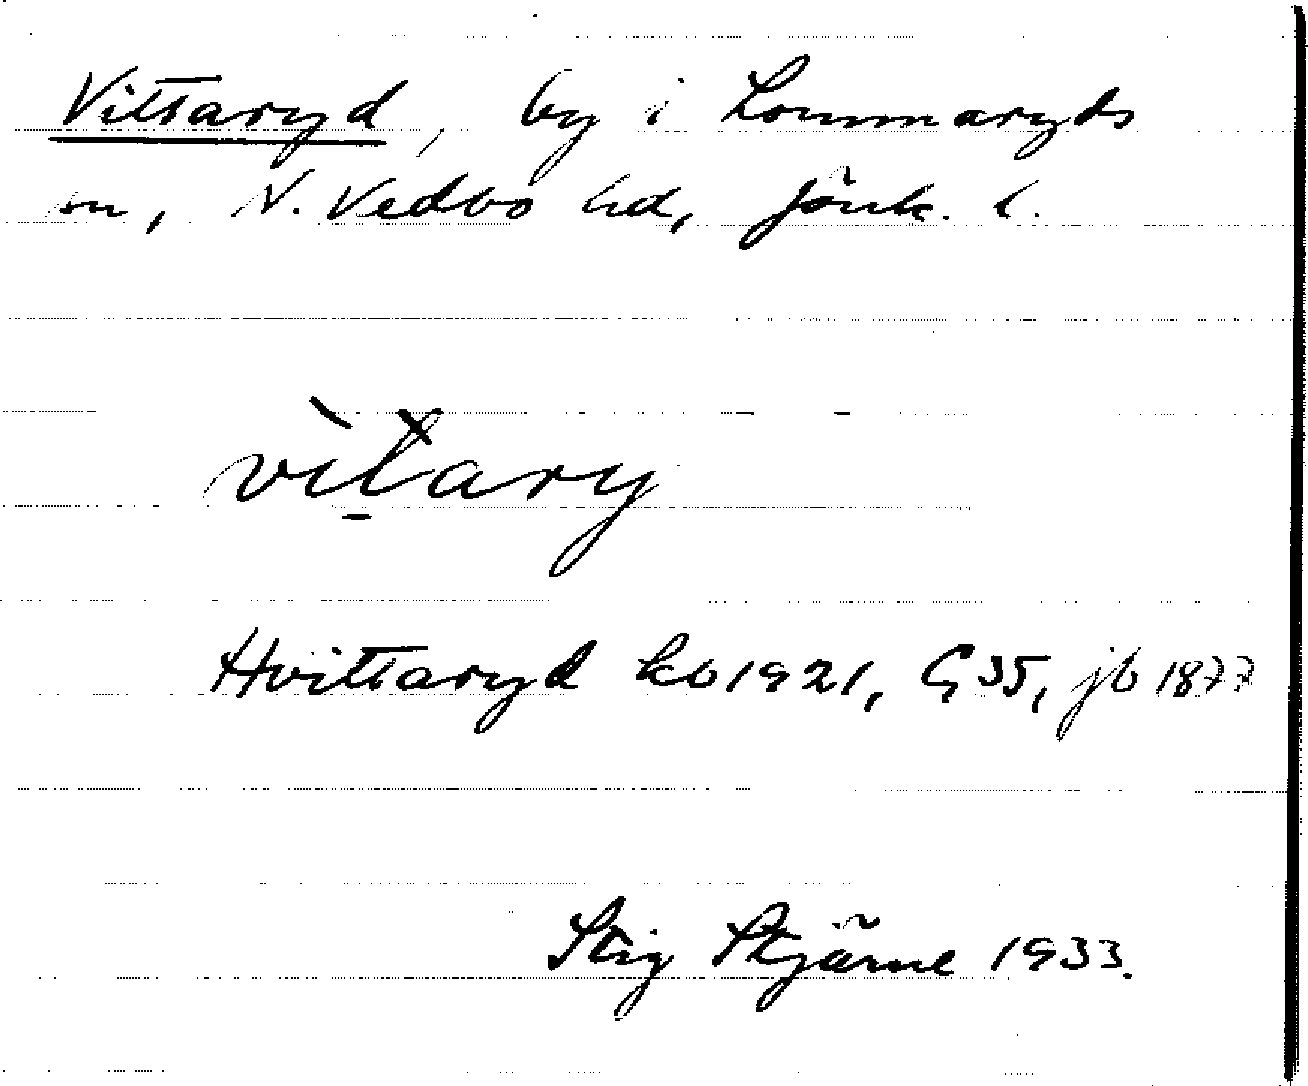 Vittaryd, by i Lommaryds
sn, N. Vedbo hd, Jönk. l.
vìt̀ary
Hvittaryd kb 1921, G 35, jb 1877
Stig Stjärne 1933.